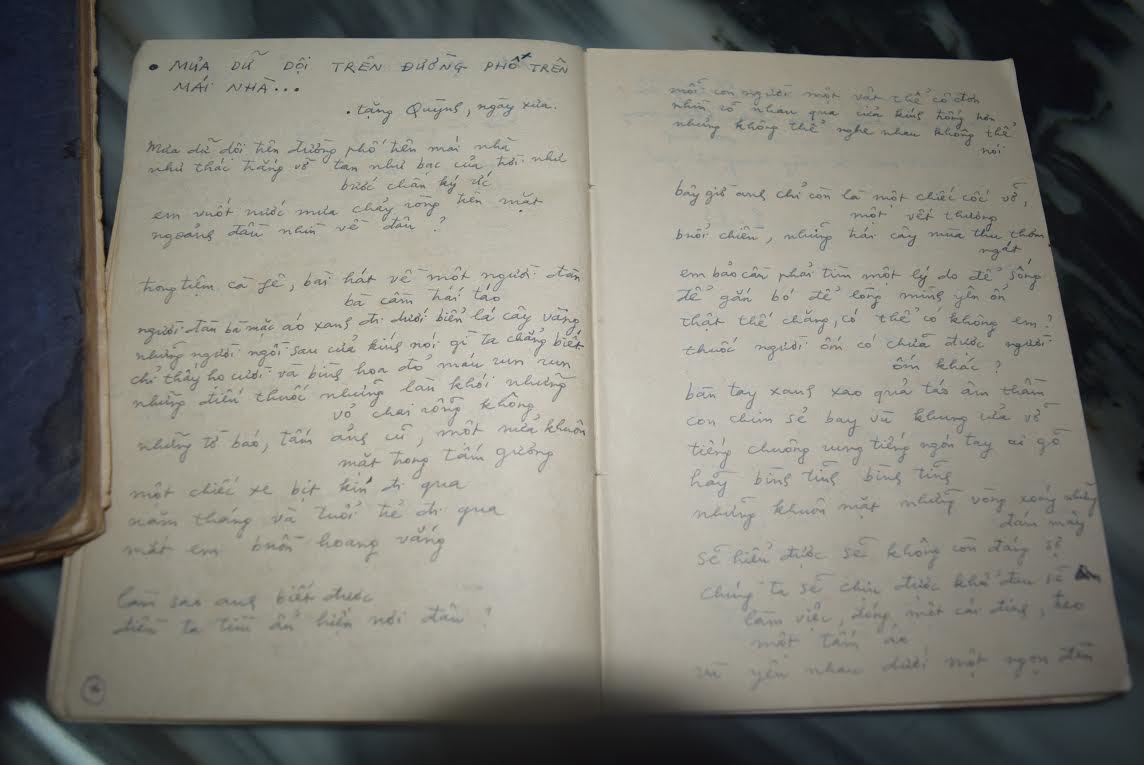 • MƯA DỮ DỘI TRÊN ĐƯỜNG PHỐ TRÊN
MÁI NHÀ...
. tặng Quỳnh, ngày xưa.
Mưa dữ dội trên đường phố trên mái nhà
như thác trắng vỡ tan như bạc của trời như
bước chân ký ức
em vuốt nước mưa chảy ròng trên mặt
ngoảnh đầu nhìn về đâu?
trong tiệm cà fê, bài hát về một người đàn
bà cầm trái táo
người đàn bà mặc áo xanh đi dưới biển lá cây vàng
những người ngồi sau cửa kính nói gì ta chẳng biết
chỉ thấy họ cười và bình hoa đỏ máu run run
những điếu thuốc những làn khói những
vỏ chai rỗng không
những tờ báo, tấm ảnh cũ, một nửa khuôn
mặt trong tấm gương
một chiếc xe bịt kín đi qua
năm tháng và tuổi trẻ đi qua
mắt em buồn hoang vắng
làm sao anh biết được
điều ta tìm ẩn hiện nơi đâu?
mỗi con người một vật thể cô đơn
nhìn rõ nhau qua cửa kính
nhưng không thể nghe nhau không thể
nói
bây giờ anh chỉ còn là một chiếc cốc vỡ,
một vết thương
buổi chiều, những trái cây mùa thu thơm
ngát
em bảo cần phải tìm một lý do để sống
để gắn bó để lòng mình yên ổn
thật thế chăng, có thể có không em?
thuốc người ốm có chữa được người
ốm khác?
bàn tay xanh xao quả táo âm thầm
con chim sẻ bay và khung cửa vỡ
tiếng chuông rung tiếng ngón tay ai gõ
hãy bình tĩnh bình tĩnh
những khuôn mặt những vòng xoáy những
đám mây
sẽ hiểu được sẽ không còn đáng sợ
chúng ta sẽ chịu được khổ đau sẽ
làm việc, đóng một cái đinh, treo
một tấm áo
và yêu nhau dưới một ngọn đèn